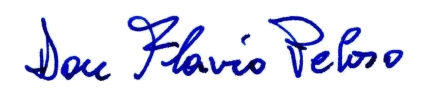 Don Flavio Peloso